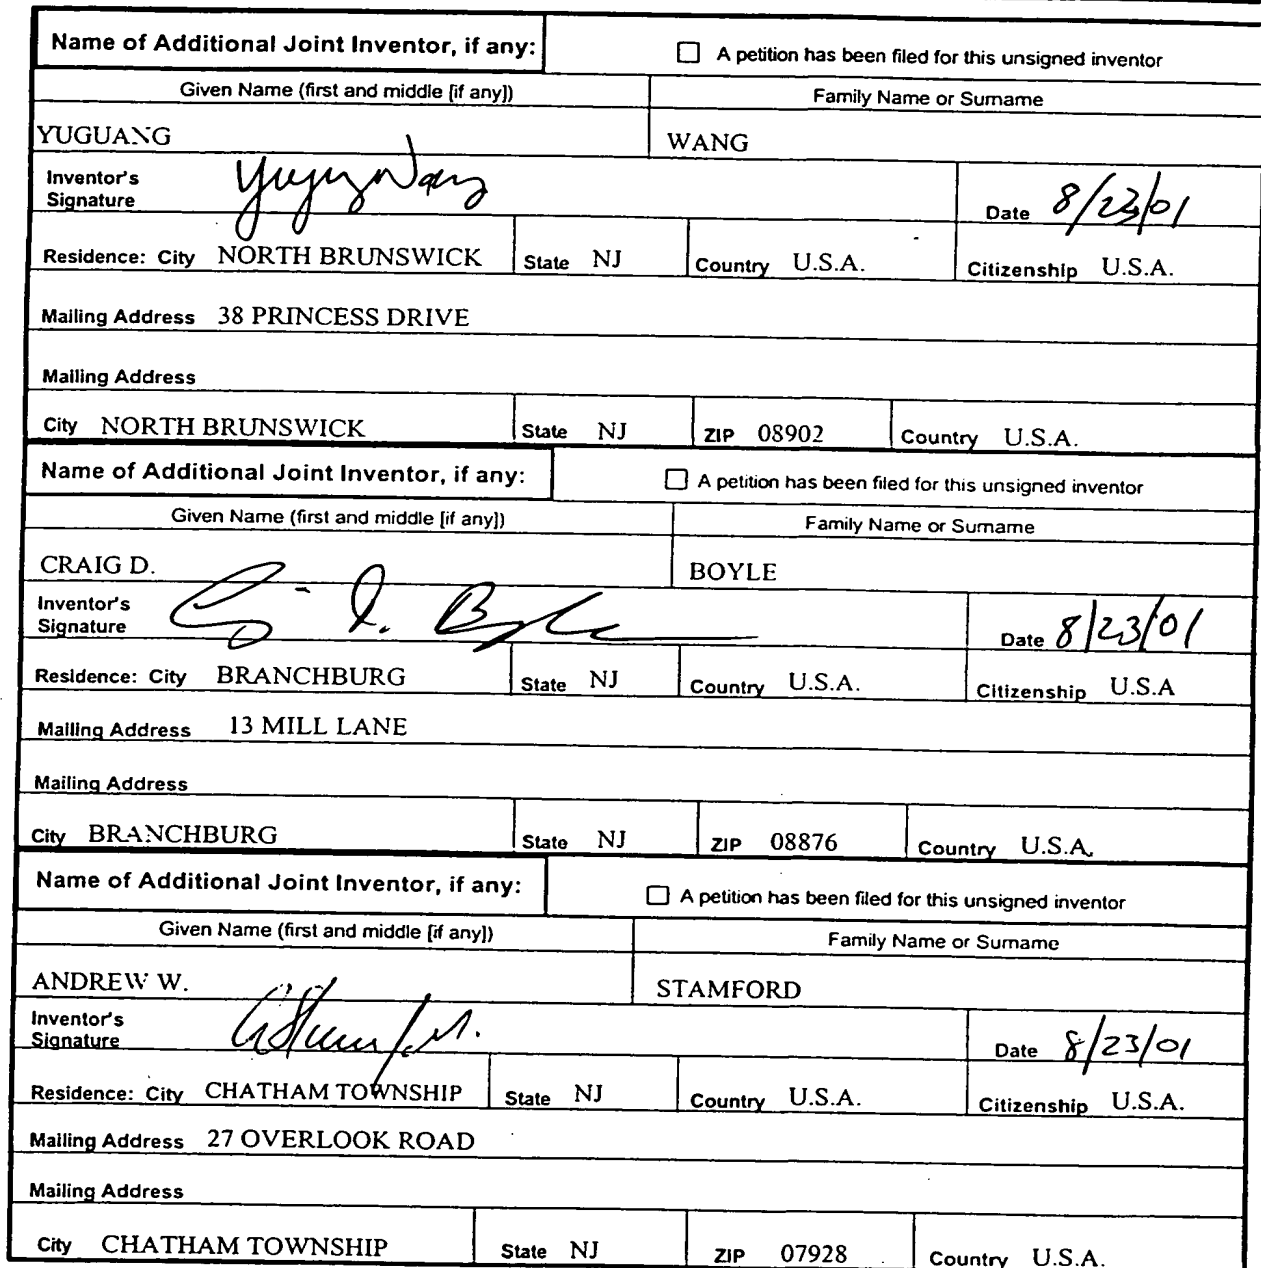 Name of Additional Joint Inventor, if any: A petition has been filed for this unsigned inventor
Given Name (first and middle [if any]) Family Name or Surname
YUGUANG WANG
Inventor's Signature Date 8/23/01
Residence: City NORTH BRUNSWICK State NJ Country U.S.A. Citizenship U.S.A.
Mailing Address 38 PRINCESS DRIVE
Mailing Address
City NORTH BRUNSWICK State NJ ZIP 08902 Country U.S.A.
Name of Additional Joint Inventor, if any: A petition has been filed for this unsigned inventor
Given Name (first and middle [if any]) Family Name or Surname
CRAIG D. BOYLE
Inventor's Signature Date 8/23/01
Residence: City BRANCHBURG State NJ Country U.S.A. Citizenship U.S.A
Mailing Address 13 MILL LANE
Mailing Address
City BRANCHBURG State NJ ZIP 08876 Country U.S.A.
Name of Additional Joint Inventor, if any: A petition has been filed for this unsigned inventor
Given Name (first and middle [if any]) Family Name or Surname
ANDREW W. STAMFORD
Inventor's Signature Date 8/23/01
Residence: City CHATHAM TOWNSHIP State NJ Country U.S.A. Citizenship U.S.A.
Mailing Address 27 OVERLOOK ROAD
Mailing Address
City CHATHAM TOWNSHIP State NJ ZIP 07928 Country U.S.A.